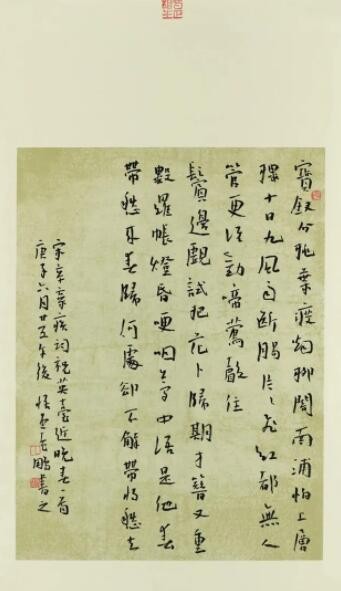 寶釵分桃葉渡煙柳闇南浦怕上層
樓十日九風雨斷腸片片飛紅都無人
管更誰勸啼鶯聲住
鬢邊覷試把花卜歸期才簪又重
數羅帳燈昏哽咽夢中語是他春
帶愁來春歸何處卻不解帶將愁去
宋辛棄疾詞祝英臺近晚春一首
庚子六月廿五午後鵬書之